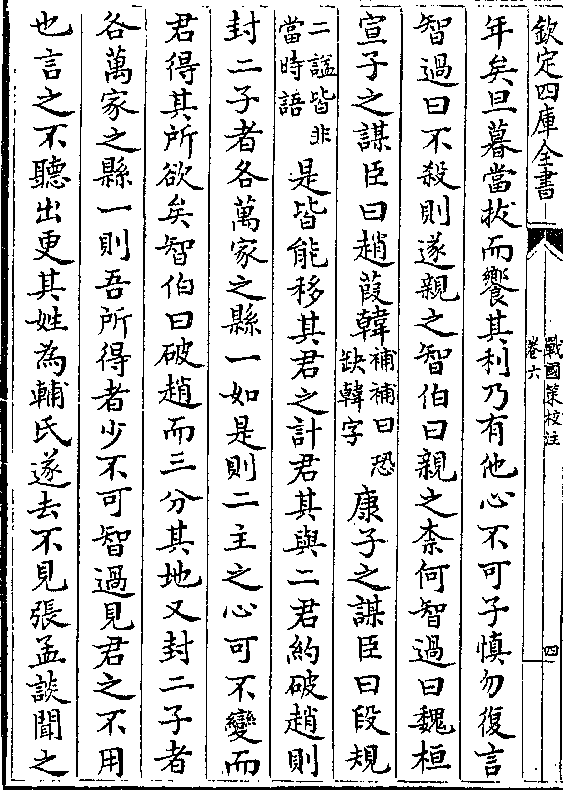 欽定四庫全書
戰國策校注
卷六
四
年矣旦暮當拔而饗其利乃有他心不可子慎勿復言
智過曰不殺則遂親之智伯曰親之柰何智過曰魏桓
宣子之謀臣曰趙葭韓補補曰恐缺韓字康子之謀臣曰段規
二諡皆非當時語是皆能移其君之計君其與二君約破趙則
封二子者各萬家之縣一如是則二主之心可不變而
君得其所欲矣智伯曰破趙而三分其地又封二子者
各萬家之縣一則吾所得者少不可智過見君之不用
也言之不聽出更其姓為輔氏遂去不見張孟談聞之